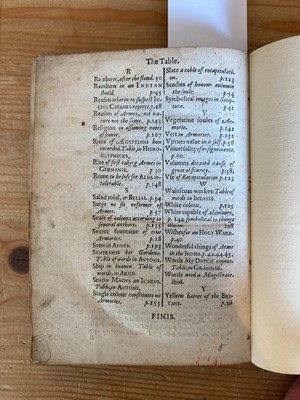 The Table.
R
Rainbow, after the flood. 50
Rainbow in an INDIAN
shield. p.45
Reason wherein to subsist
CÆSARS reports. p.28
Reason of Armes, and na-
ture not the same. p.143
Religion in assuming notes
of honor. p.167
Rites of ÆGYPTIANS how
recorded. Table, in HIERO-
GLYPHICKS,
Rite of first taking Armes in
GERMANIE, p.30
Rome to be left for AL to-
lerable. p.148
S
Salad roial, or BELIAL. p.54
Satyr no fit reformer of
Armes. p.57
Scale of colours according to
severall authors. p.125
Secret fountaine of true
Armories. p.18
Sem in AGNES. p.193
SEMIRAMIS her Gardens.
Table of words in AVTONS,
Ship in heaven. Table of
words, in ARGO.
SIMON MAGVS an ICARVS.
Table, in AVTONS,
Single colour constitutes no
Armories. p.155
Slate a table of recapitulati-
on. p.123
Studies of honour entomb
the soule. p.54
Symbolical images in SENE-
p.41
V
Vegetative soules of Ar-
mories. p.142
Vert in Armories. p.151
Virtues value in it self. p.56
p.60
Volumes decaied cause of
great obscurity. p.58
Vse of Recapitulation p.123
W
Wainscot workes. Table of
words in INLAYES.
White colour, p.125
White capable of al colours,
p.144. symbolical to things
divine. p.128
Withes for an HOLY WARE.
p.40
Wonderful things of Arms
in the INDIES. p.42.44.45.
Words like DUTCH capons.
Table, in GRAMMAR.
Words need a Magistrate.
ibid.
Y
Yellow haires of the BRI-
TANS. p.26
FINIS.